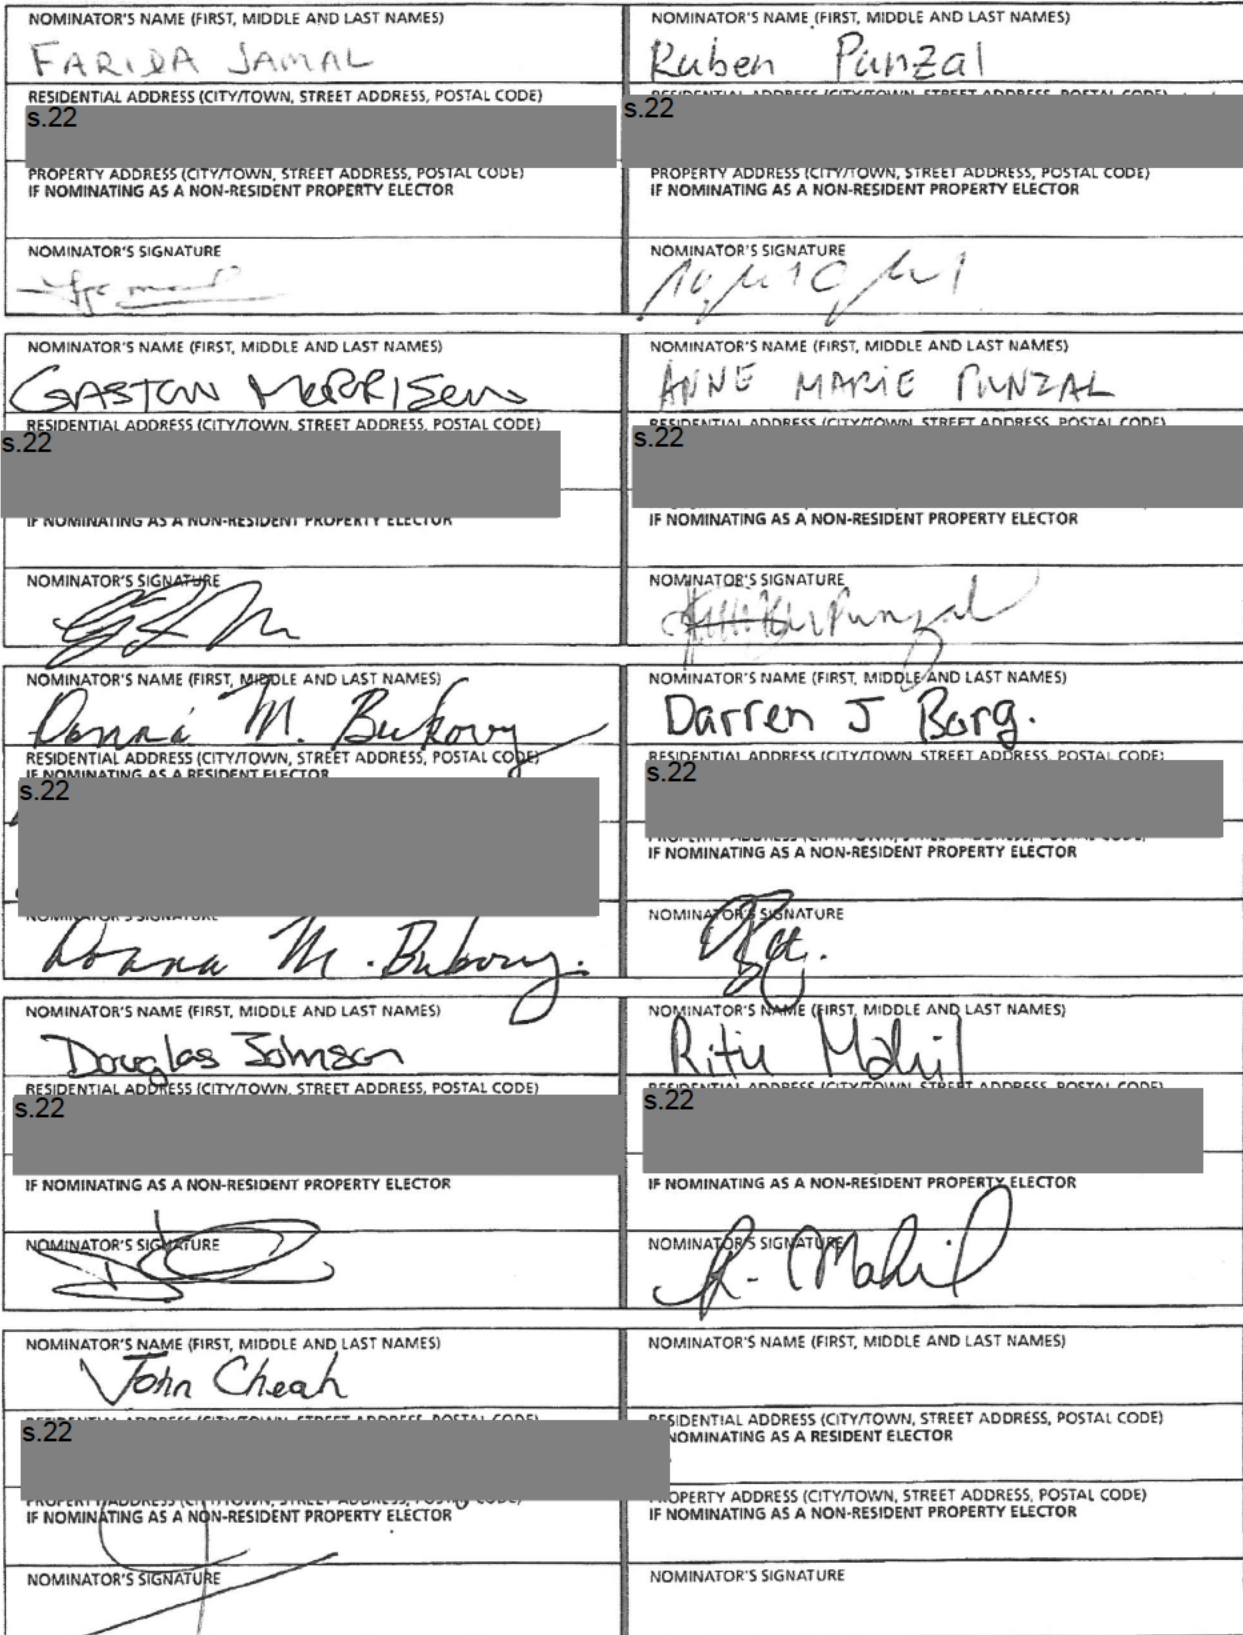 NOMINATOR'S NAME (FIRST, MIDDLE AND LAST NAMES)
FARIDA JAMAL
RESIDENTIAL ADDRESS (CITY/TOWN, STREET ADDRESS, POSTAL CODE)
s.22
PROPERTY ADDRESS (CITY/TOWN, STREET ADDRESS, POSTAL CODE)
IF NOMINATING AS A NON-RESIDENT PROPERTY ELECTOR
NOMINATOR'S SIGNATURE
NOMINATOR'S NAME (FIRST, MIDDLE AND LAST NAMES)
Ruben Punzal
RESIDENTIAL ADDRESS (CITY/TOWN, STREET ADDRESS, POSTAL CODE)
s.22
PROPERTY ADDRESS (CITY/TOWN, STREET ADDRESS, POSTAL CODE)
IF NOMINATING AS A NON-RESIDENT PROPERTY ELECTOR
NOMINATOR'S SIGNATURE
NOMINATOR'S NAME (FIRST, MIDDLE AND LAST NAMES)
GASTON MORRISON
RESIDENTIAL ADDRESS (CITY/TOWN, STREET ADDRESS, POSTAL CODE)
s.22
IF NOMINATING AS A NON-RESIDENT PROPERTY ELECTOR
NOMINATOR'S SIGNATURE
NOMINATOR'S NAME (FIRST, MIDDLE AND LAST NAMES)
ANNE MARIE PUNZAL
RESIDENTIAL ADDRESS (CITY/TOWN, STREET ADDRESS, POSTAL CODE)
s.22
IF NOMINATING AS A NON-RESIDENT PROPERTY ELECTOR
NOMINATOR'S SIGNATURE
Punzal
NOMINATOR'S NAME (FIRST, MIDDLE AND LAST NAMES)
Donna M. Bukovy
RESIDENTIAL ADDRESS (CITY/TOWN, STREET ADDRESS, POSTAL CODE)
IF NOMINATING AS A RESIDENT ELECTOR
s.22
NOMINATOR'S SIGNATURE
Donna M. Bukovy.
NOMINATOR'S NAME (FIRST, MIDDLE AND LAST NAMES)
Darren J Borg.
RESIDENTIAL ADDRESS (CITY/TOWN, STREET ADDRESS, POSTAL CODE)
s.22
PROPERTY ADDRESS (CITY/TOWN, STREET ADDRESS, POSTAL CODE)
IF NOMINATING AS A NON-RESIDENT PROPERTY ELECTOR
NOMINATOR'S SIGNATURE
NOMINATOR'S NAME (FIRST, MIDDLE AND LAST NAMES)
Douglas Johnson
RESIDENTIAL ADDRESS (CITY/TOWN, STREET ADDRESS, POSTAL CODE)
s.22
IF NOMINATING AS A NON-RESIDENT PROPERTY ELECTOR
NOMINATOR'S SIGNATURE
NOMINATOR'S NAME (FIRST, MIDDLE AND LAST NAMES)
Ritu Mahil
RESIDENTIAL ADDRESS (CITY/TOWN, STREET ADDRESS, POSTAL CODE)
s.22
IF NOMINATING AS A NON-RESIDENT PROPERTY ELECTOR
NOMINATOR'S SIGNATURE
R. Mahil
NOMINATOR'S NAME (FIRST, MIDDLE AND LAST NAMES)
John Cheah
RESIDENTIAL ADDRESS (CITY/TOWN, STREET ADDRESS, POSTAL CODE)
s.22
PROPERTY ADDRESS (CITY/TOWN, STREET ADDRESS, POSTAL CODE)
IF NOMINATING AS A NON-RESIDENT PROPERTY ELECTOR
NOMINATOR'S SIGNATURE
NOMINATOR'S NAME (FIRST, MIDDLE AND LAST NAMES)
RESIDENTIAL ADDRESS (CITY/TOWN, STREET ADDRESS, POSTAL CODE)
NOMINATING AS A RESIDENT ELECTOR
PROPERTY ADDRESS (CITY/TOWN, STREET ADDRESS, POSTAL CODE)
IF NOMINATING AS A NON-RESIDENT PROPERTY ELECTOR
NOMINATOR'S SIGNATURE